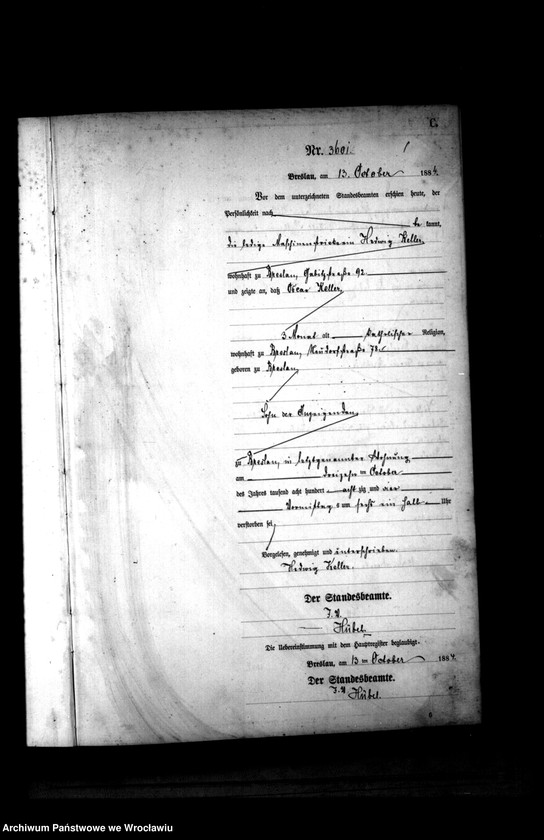 C.
Nr. 3601.
Breslau, am 13. October 1884.
Vor dem unterzeichneten Standesbeamten erschien heute, der
Persönlichkeit nach
be kannt,
die ledige Hedwig Keller,
wohnhaft zu Breslau, Gabitzstraße 92
und zeigte an, daß Oscar Keller,
3 Monat alt katholischer Religion,
wohnhaft zu Breslau, Neudorfstraße
geboren zu Breslau,
Sohn der Anzeigenden,
zu Breslau, in letztgenannter Wohnung,
am dreizehn ten October
des Jahres tausend acht hundert acht zig und vier
Vormittags um sechs ein halb Uhr
verstorben sei.
Vorgelesen, genehmigt und unterschrieben.
Hedwig Keller.
Der Standesbeamte.
I. V.
Hübel
Die Uebereinstimmung mit dem Hauptregister beglaubigt.
Breslau, am 13 ten October 1884.
Der Standesbeamte.
I. V. Hübel.
Archiwum Państwowe we Wrocławiu